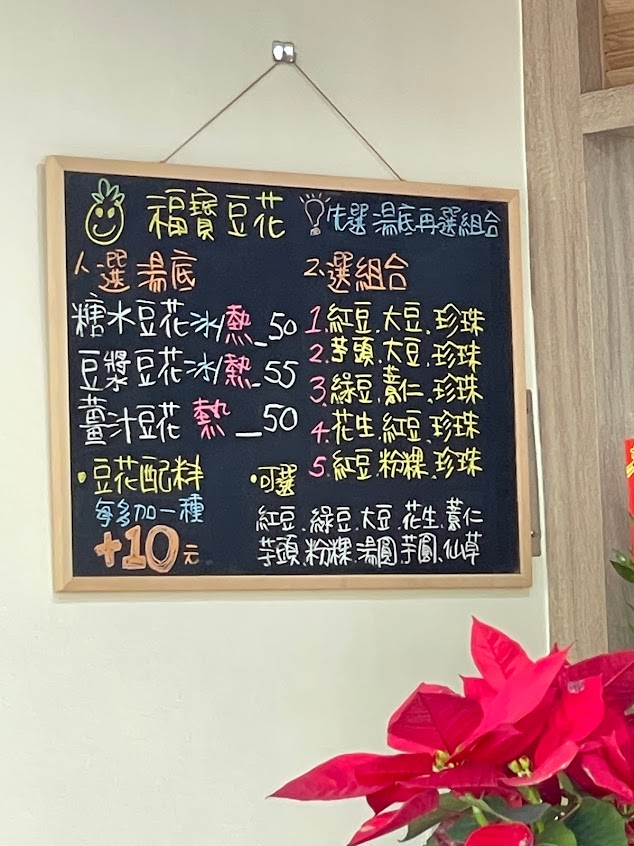 福寶豆花
先選湯底再選組合
1.選湯底
糖水豆花冰/熱_50
豆漿豆花冰/熱_55
薑汁豆花 熱_50
2.選組合
1.紅豆.大豆.珍珠
2.芋頭.大豆.珍珠
3.綠豆.薏仁.珍珠
4.花生.紅豆.珍珠
5.紅豆.粉粿.珍珠
•豆花配料
每多加一種
+10元
•可選
紅豆.綠豆.大豆.花生.薏仁
芋頭.粉粿.湯圓.芋圓.仙草